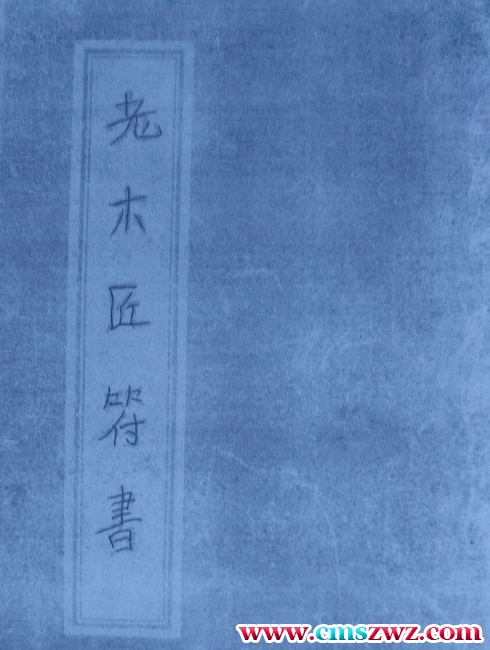 老木匠符書
www.cmszwz.com